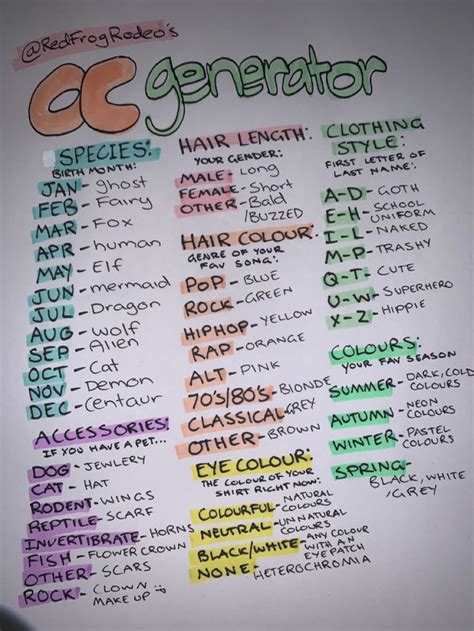 @RedFrogRodeo's
OC generator
SPECIES:
BIRTH MONTH:
JAN - ghost
FEB - Fairy
MAR - Fox
APR - human
MAY - Elf
JUN - mermaid
JUL - Dragon
AUG - wolf
SEP - Alien
OCT - Cat
NOV - Demon
DEC - Centaur
ACCESSORIES:
IF YOU HAVE A PET...
DOG - JEWLERY
CAT - HAT
RODENT - WINGS
REPTILE - SCARF
INVERTIBRATE - HORNS
FISH - FLOWER CROWN
OTHER - SCARS
ROCK - CLOWN
MAKE UP
HAIR LENGTH:
YOUR GENDER:
MALE - Long
FEMALE - Short
OTHER - Bald
/BUZZED
HAIR COLOUR:
GENRE OF YOUR
FAV SONG:
POP - BLUE
ROCK - GREEN
HIPHOP - YELLOW
RAP - ORANGE
ALT - PINK
70's/80's - BLONDE
CLASSICAL - GREY
OTHER - BROWN
EYE COLOUR:
THE COLOUR OF YOUR
SHIRT RIGHT NOW:
COLOURFUL - NATURAL
COLOURS
NEUTRAL - UNNATURAL
COLOURS
BLACK/WHITE - ANY COLOUR
WITH AN
EYEPATCH
NONE - HETEROCHROMIA
CLOTHING
STYLE:
FIRST LETTER OF
LAST NAME:
A-D - GOTH
E-H - SCHOOL
UNIFORM
I-L - NAKED
M-P - TRASHY
Q-T - CUTE
U-W - SUPERHERO
X-Z - HIPPIE
COLOURS:
YOUR FAV SEASON
SUMMER - DARK, COLD
COLOURS
AUTUMN - NEON
COLOURS
WINTER - PASTEL
COLOURS
SPRING -
BLACK, WHITE
, GREY